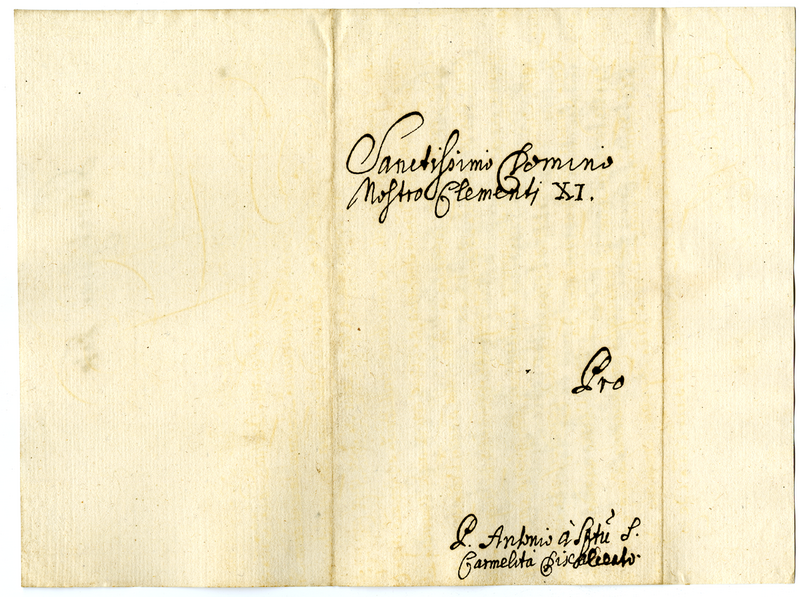 Sanctissimo Domino
Nostro Clementi XI.
Pro
P. Antonio à Sptũ S.
Carmelita Discalceato.